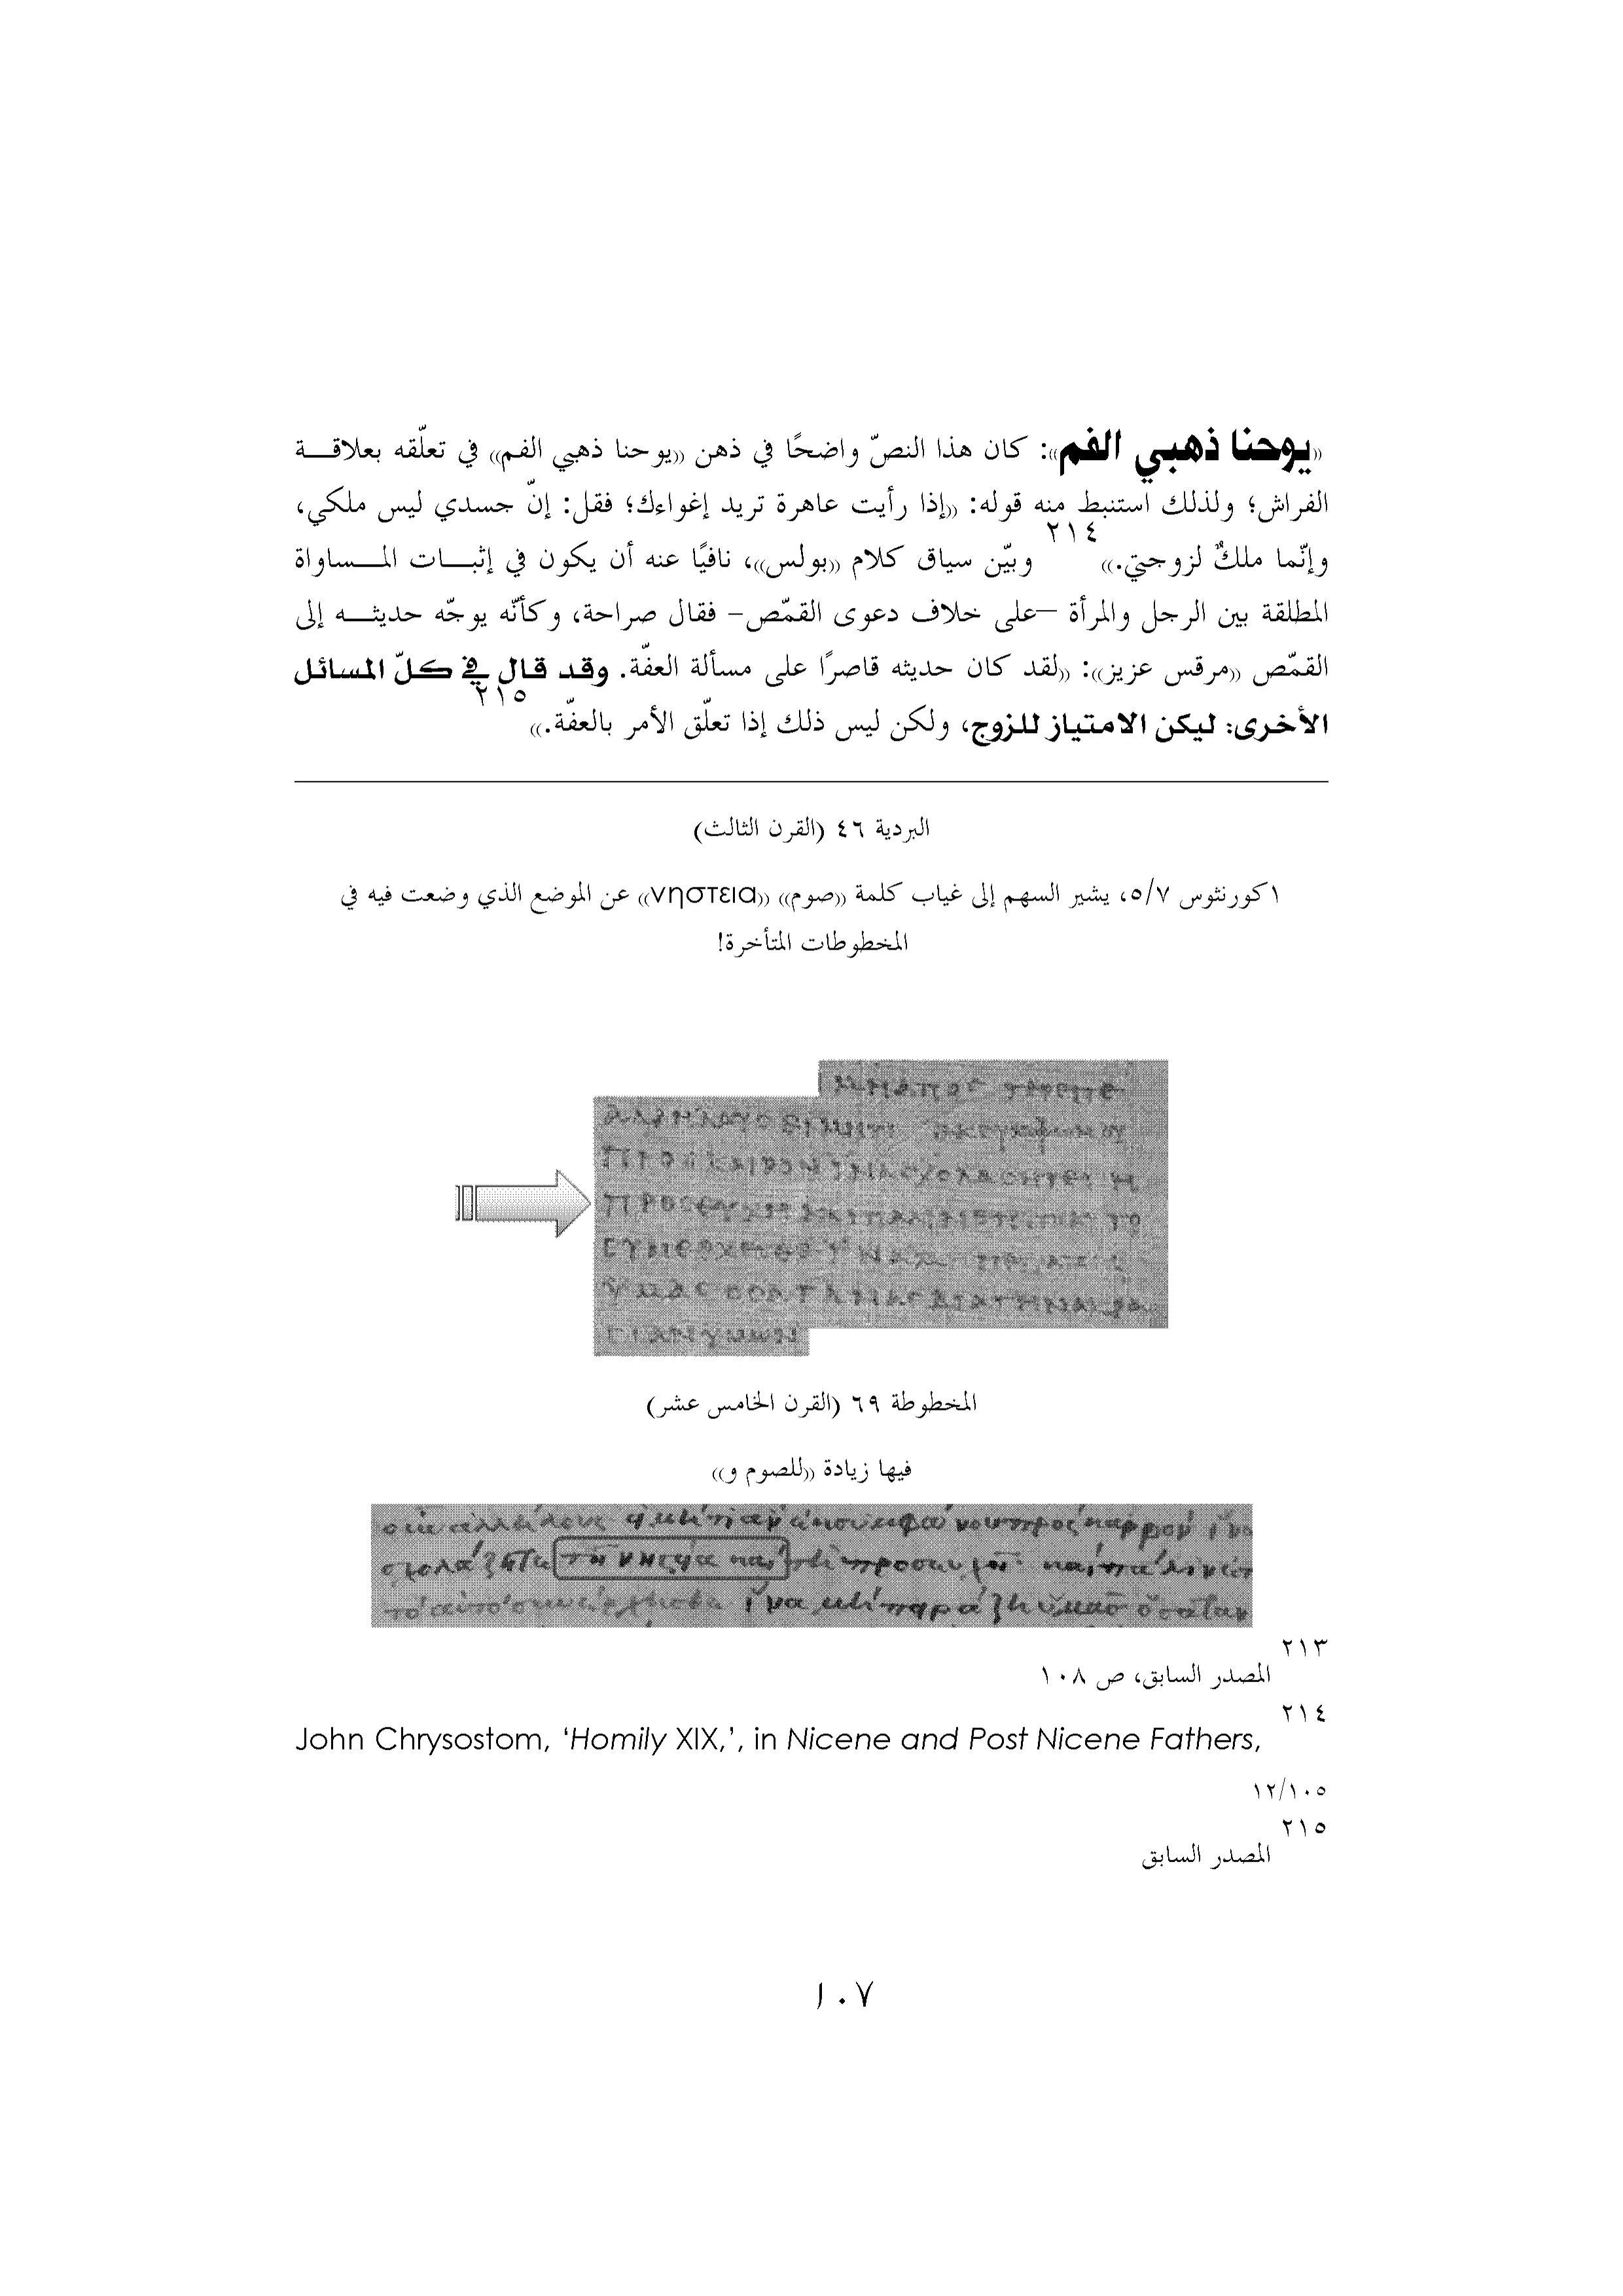 «يوحنا ذهبي الفم»: كان هذا النصّ واضحًا في ذهن «يوحنا ذهبي الفم» في تعلّقه بعلاقـــة
الفراش؛ ولذلك استنبط منه قوله: «إذا رأيت عاهرة تريد إغواءك؛ فقل: إنّ جسدي ليس ملكي،
وإنّما ملكٌ لزوجتي.» ٢١٤ وبيّن سياق كلام «بولس»، نافيًا عنه أن يكون في إثبـــات المـــساواة
المطلقة بين الرجل والمرأة –على خلاف دعوى القمّص– فقال صراحة، وكأنّه يوجّه حديثـــه إلى
القمّص «مرقس عزيز»: «لقد كان حديثه قاصرًا على مسألة العفّة. وقد قال في كلّ المسائل
الأخرى: ليكن الامتياز للزوج، ولكن ليس ذلك إذا تعلّق الأمر بالعفّة.» ٢١٥
البردية ٤٦ (القرن الثالث)
١كورنثوس ٥/٧، يشير السهم إلى غياب كلمة «صوم» «νηστεια» عن الموضع الذي وضعت فيه في
المخطوطات المتأخرة!
المخطوطة ٦٩ (القرن الخامس عشر)
فيها زيادة «للصوم و»
٢١٣ المصدر السابق، ص ١٠٨
٢١٤
John Chrysostom, ‘Homily XIX,’, in Nicene and Post Nicene Fathers,
١٢/١٠٥
٢١٥ المصدر السابق
١٠٧